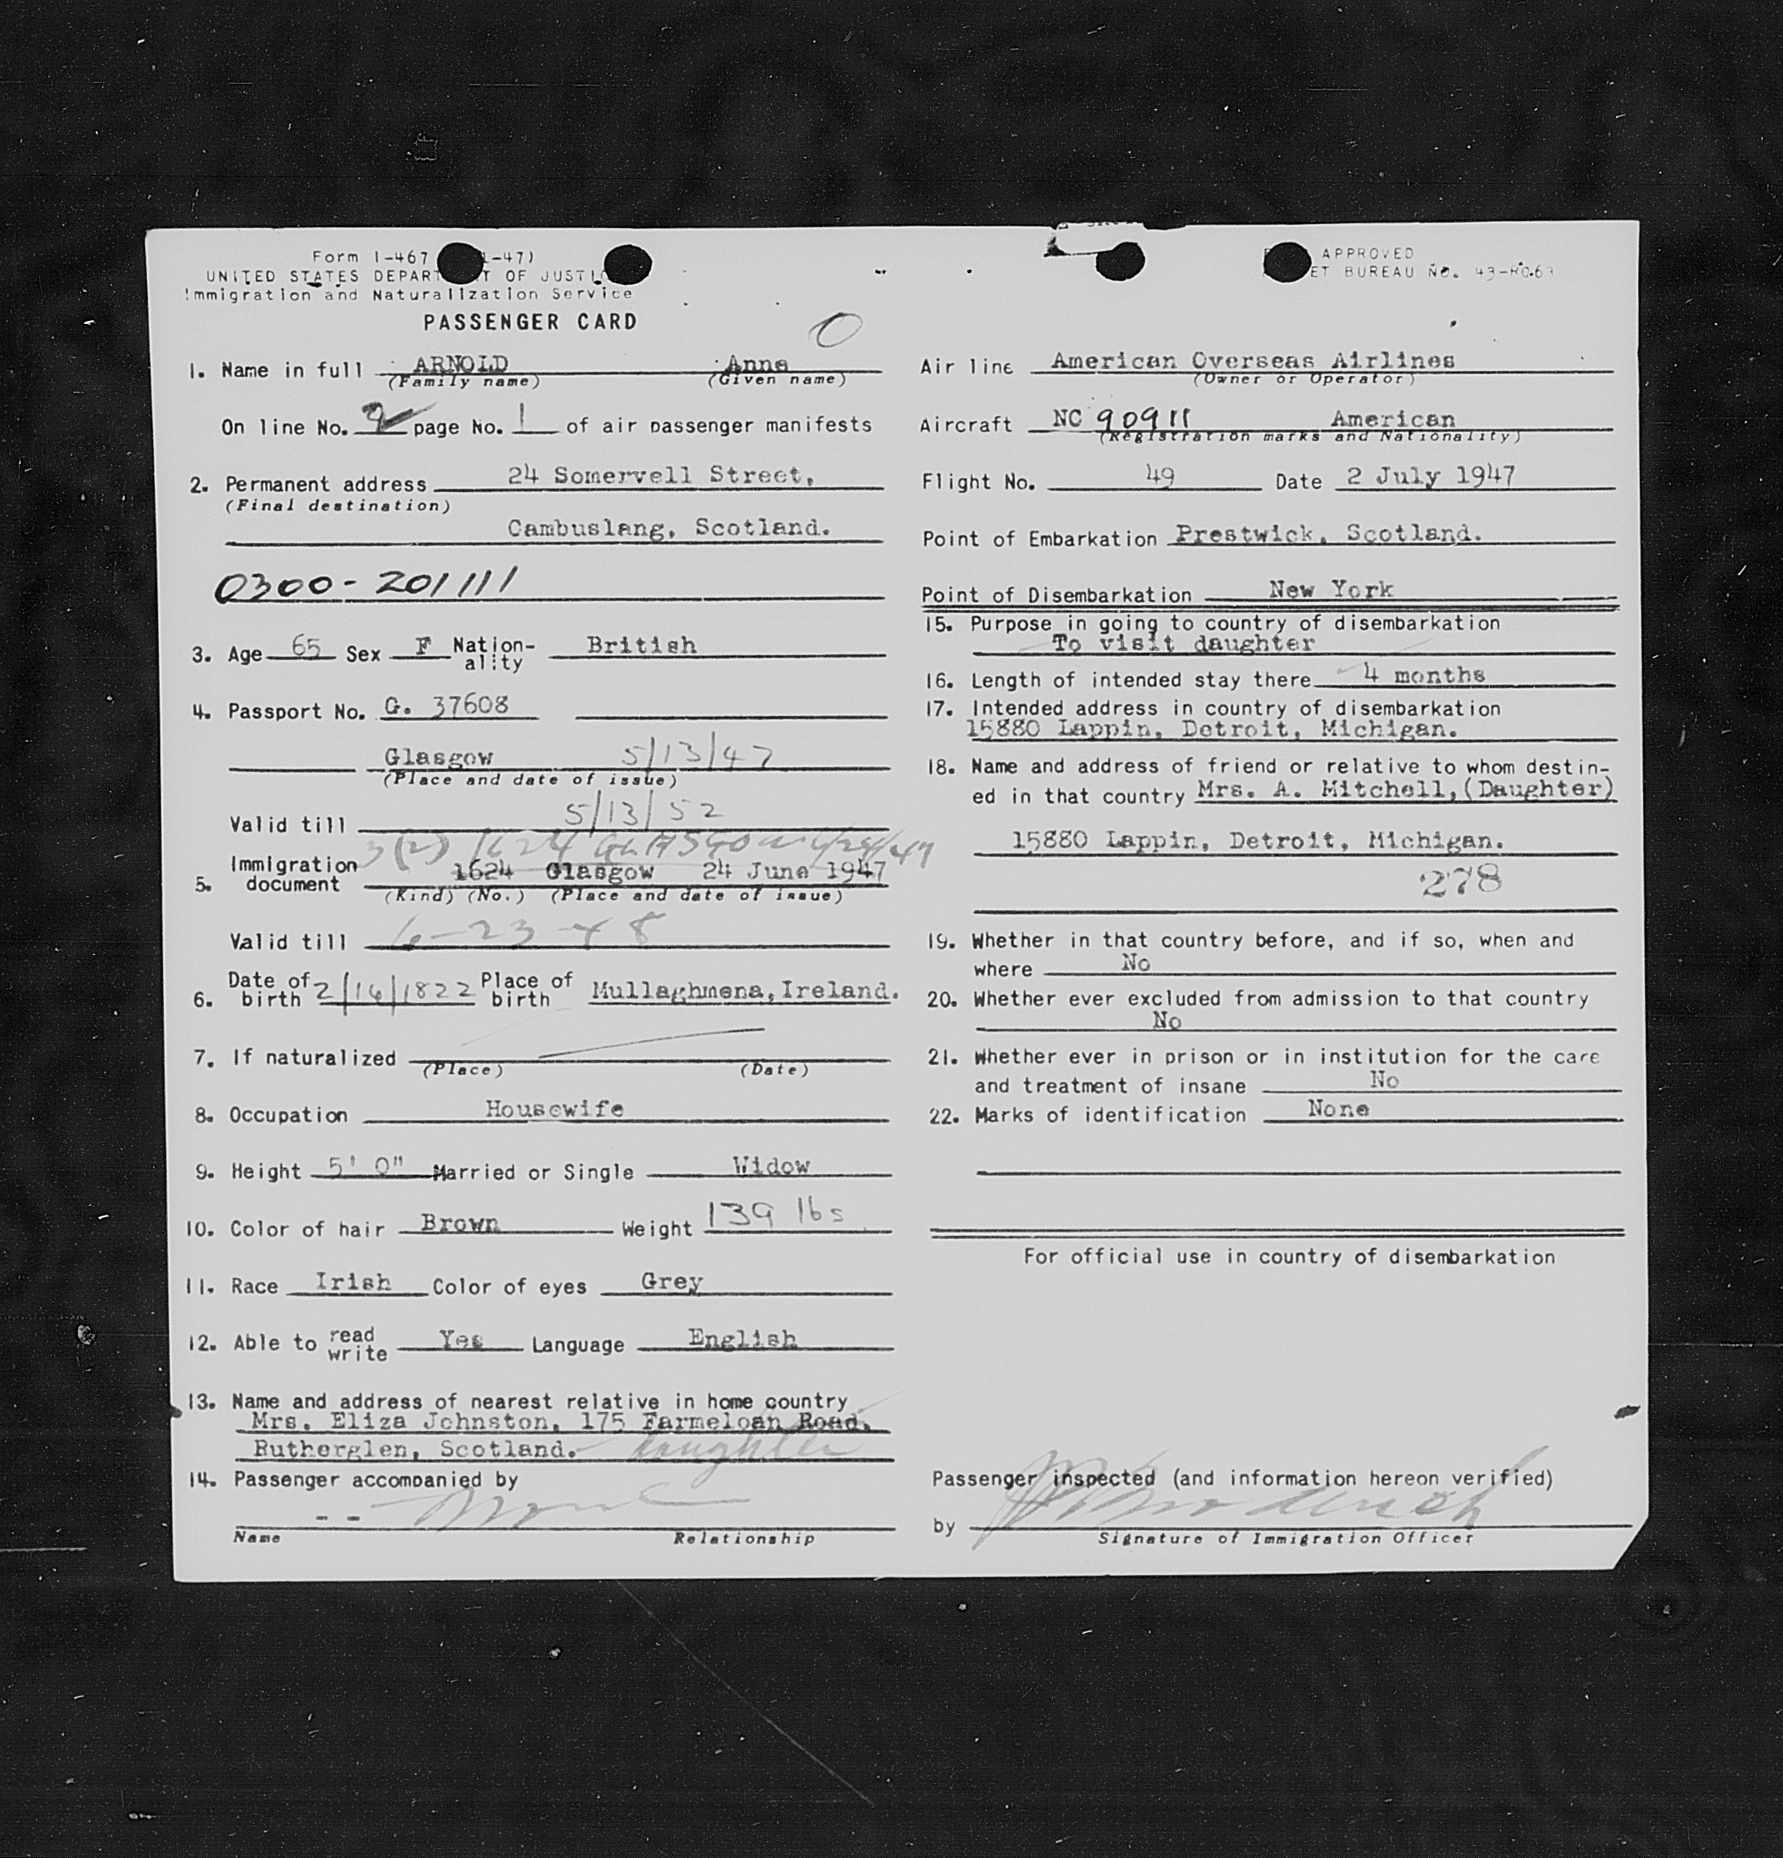 Form I-467 -47)
UNITED STATES DEPARTMENT OF JUSTICE
Immigration and Naturalization Service
PASSENGER CARD
APPROVED
ET BUREAU NO. 43-R063
0
1. Name in full ARNOLD Anne
(Family name) (Given name)
On line No. 9 page No. 1 of air passenger manifests
2. Permanent address 24 Somervell Street,
(Final destination)
Cambuslang, Scotland.
0300-201111
3. Age 65 Sex F Nation-ality British
4. Passport No. G. 37608
Glasgow 5/13/47
(Place and date of issue)
Valid till 5/13/52
3(2) 1624 GLASGOW 6/24/47
5. Immigration document 1624 Glasgow 24 June 1947
(Kind) (No.) (Place and date of issue)
Valid till 6-23-48
6. Date of birth 2/14/1822 Place of birth Mullaghmena, Ireland.
7. If naturalized
(Place) (Date)
8. Occupation Housewife
9. Height 5' 0" Married or Single Widow
10. Color of hair Brown Weight 139 lbs
11. Race Irish Color of eyes Grey
12. Able to read write Yes Language English
13. Name and address of nearest relative in home country
Mrs. Eliza Johnston, 175 Farmeloan Road,
Rutherglen, Scotland. - daughter
14. Passenger accompanied by
-- None
Name Relationship
Air line American Overseas Airlines
(Owner or Operator)
Aircraft NC 90911 American
(Registration marks and Nationality)
Flight No. 49 Date 2 July 1947
Point of Embarkation Prestwick, Scotland.
Point of Disembarkation New York
15. Purpose in going to country of disembarkation
To visit daughter
16. Length of intended stay there 4 months
17. Intended address in country of disembarkation
15880 Lappin, Detroit, Michigan.
18. Name and address of friend or relative to whom destin-
ed in that country Mrs. A. Mitchell, (Daughter)
15880 Lappin, Detroit, Michigan.
278
19. Whether in that country before, and if so, when and
where No
20. Whether ever excluded from admission to that country
No
21. Whether ever in prison or in institution for the care
and treatment of insane No
22. Marks of identification None
For official use in country of disembarkation
Passenger inspected (and information hereon verified)
by
Signature of Immigration Officer